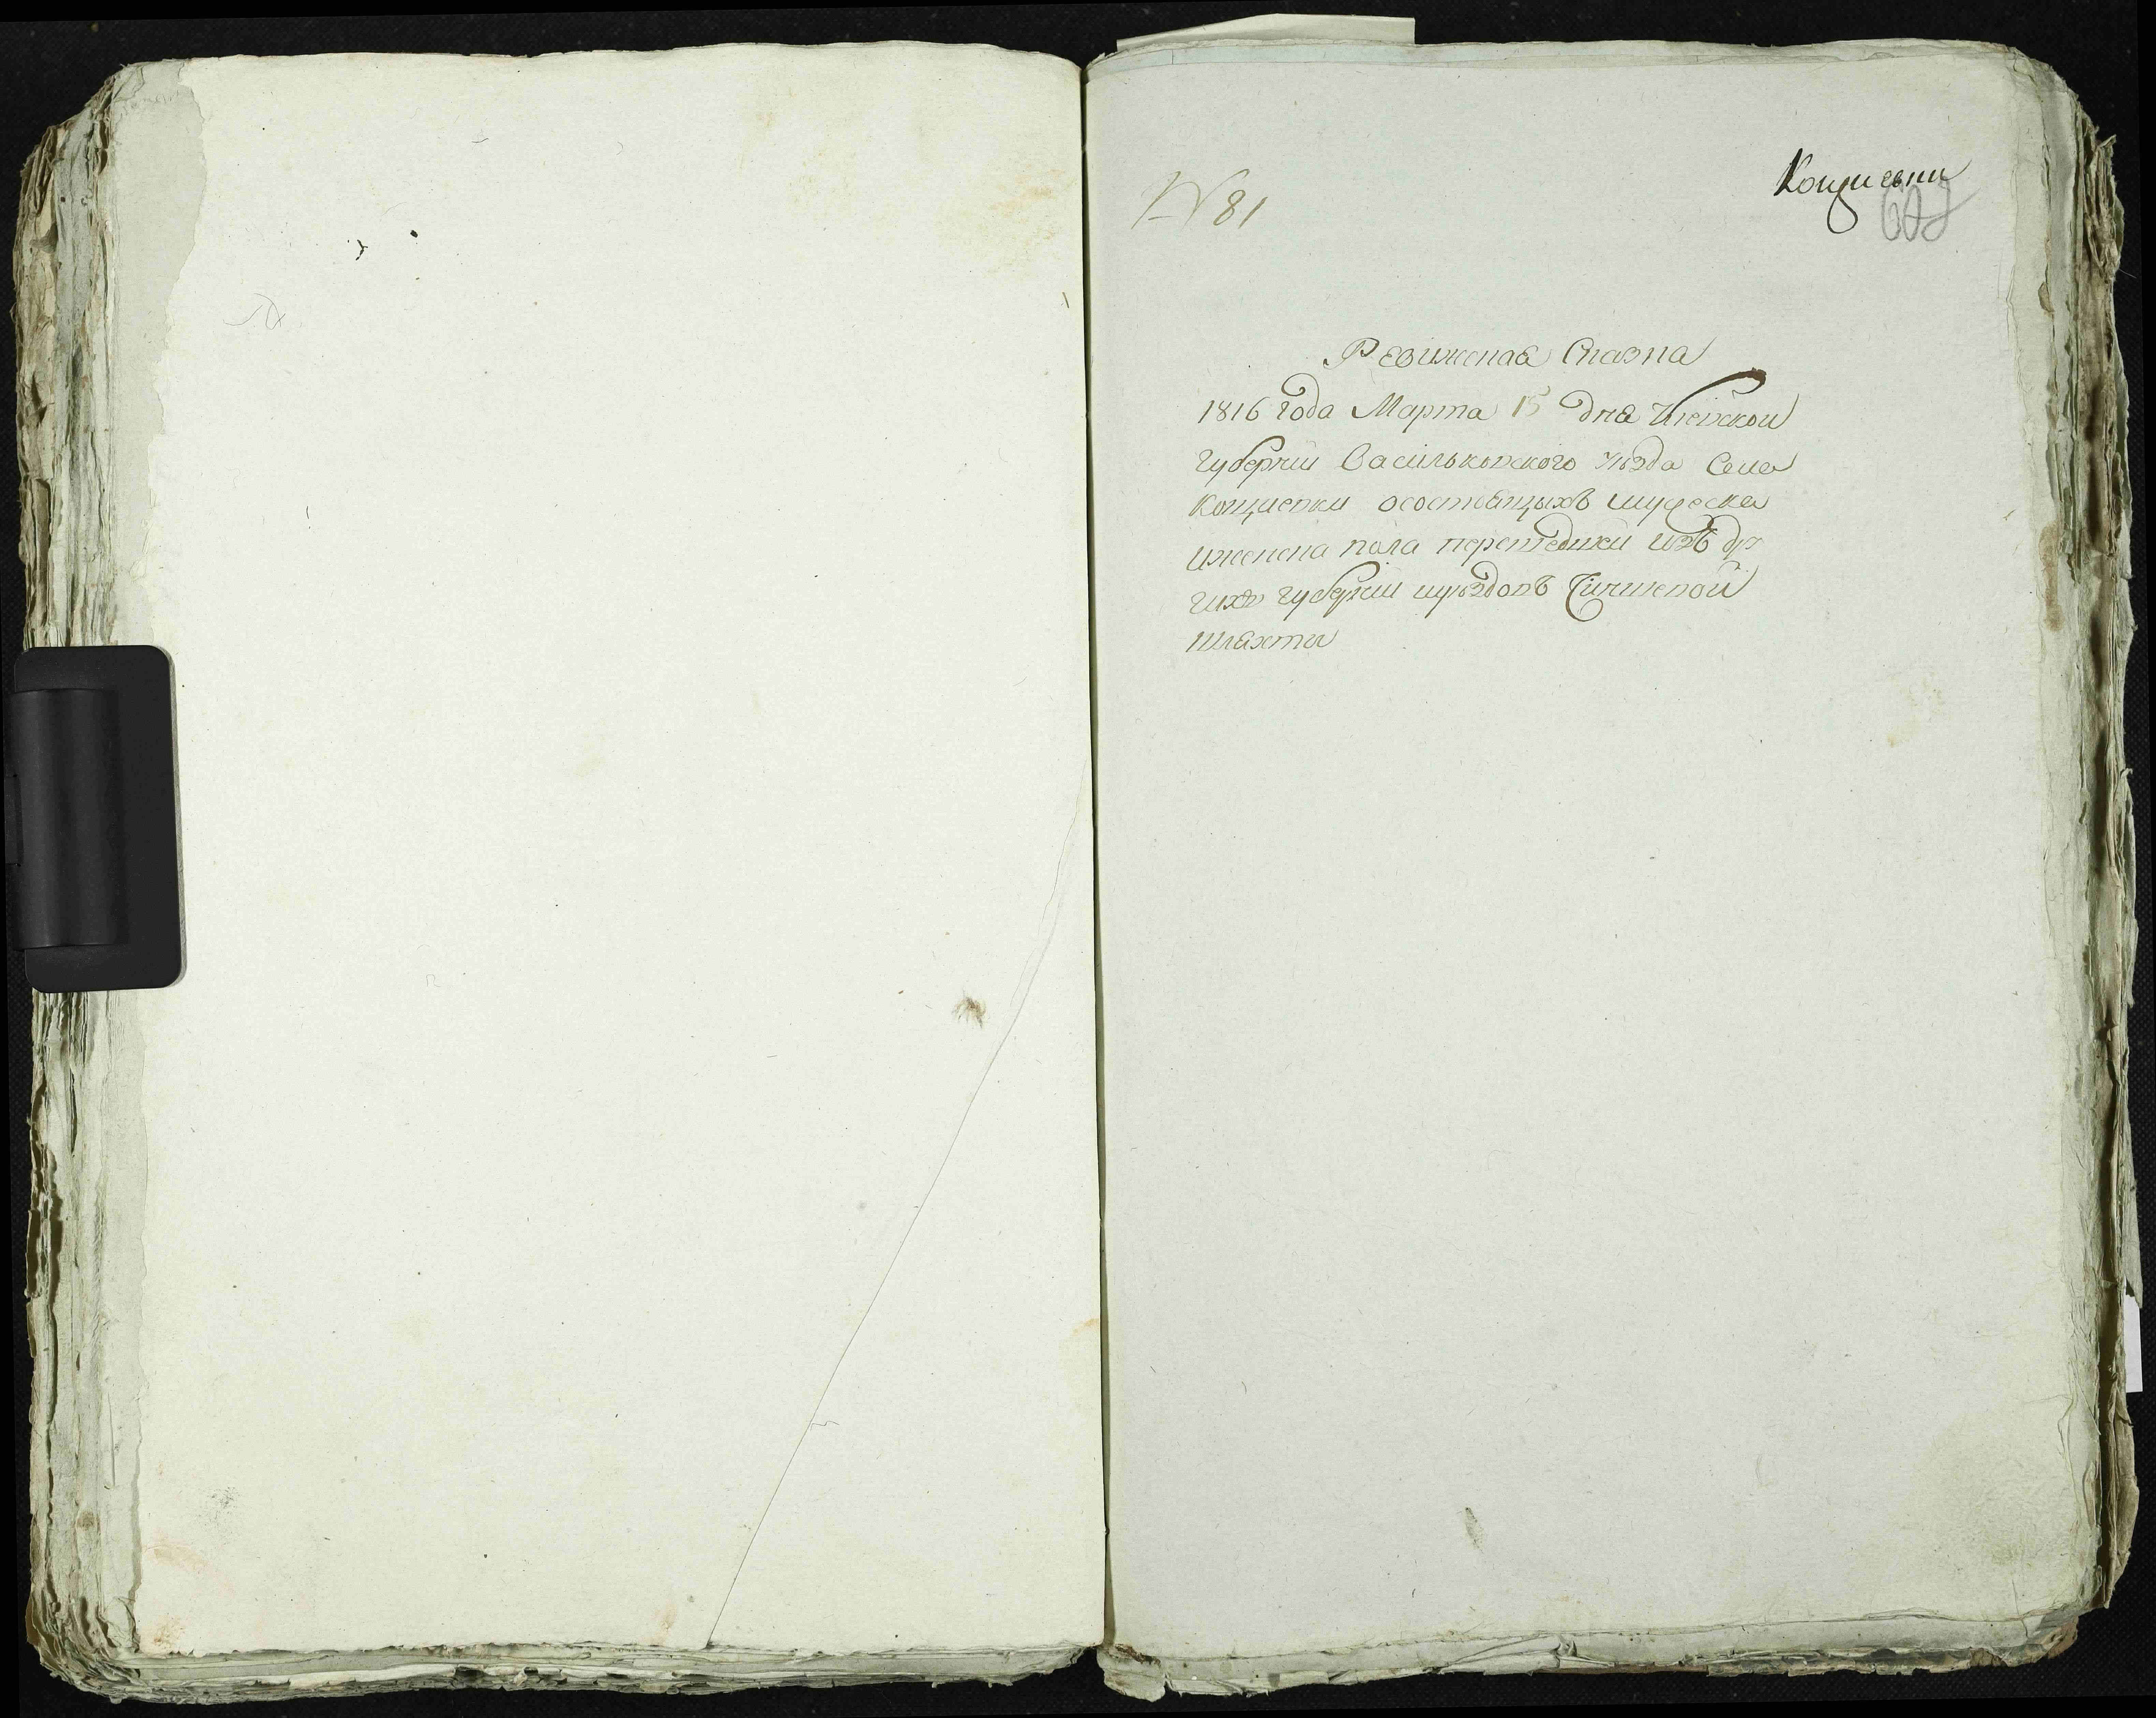 № 81
Кощиевки
602
Ревижская Сказка
1816 года Марта 15 дня Киевской
губернии Васильковского уезда Села
кощиевки осостоящыхъ мужеска
иженска пола перешедшей изъ дру
гихъ губерний иуездовъ Чиншевой
шляхты